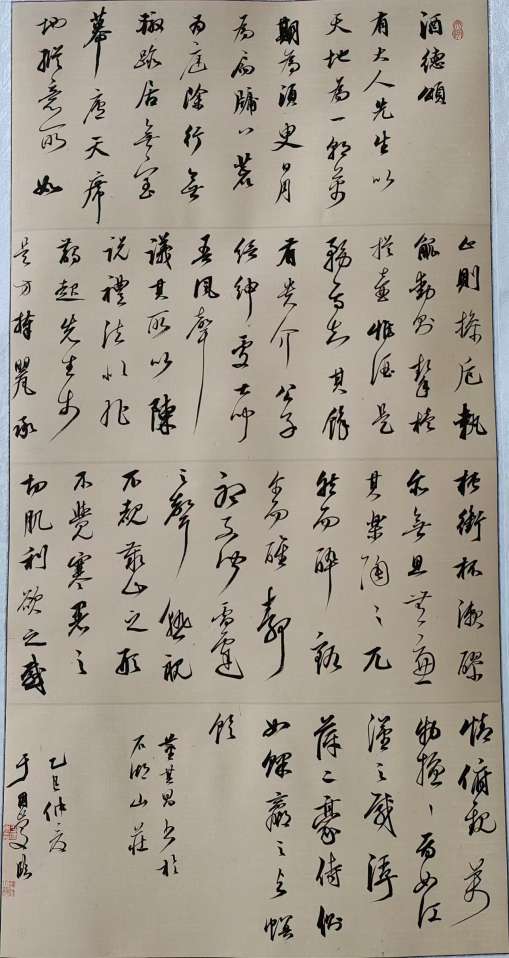 酒德頌
有大人先生以
天地為一朝萬
期為須臾日月
為扃牖八荒
為庭除行無
轍跡居無室
幕廬天席
地縱意所如
止則操卮執
觚動則挈榼
提壺惟酒是
務焉知其餘
有貴介公子
縉紳處士聞
吾風聲
議其所以陳
說禮法是非
起先生於
是方捧罌承
槽銜杯漱醪
無思無慮
其樂陶〻兀
然而醉豁
尔而醒靜
聽不聞雷霆
之聲熟視
不覩泰山之形
不覺寒暑之
切肌利欲之感
情俯觀萬
物擾〻焉如江
漢之載浮
萍二豪侍側
如蜾蠃之與螟
蛉
董其昌書於
石湖山莊
乙巳仲夏
于臨